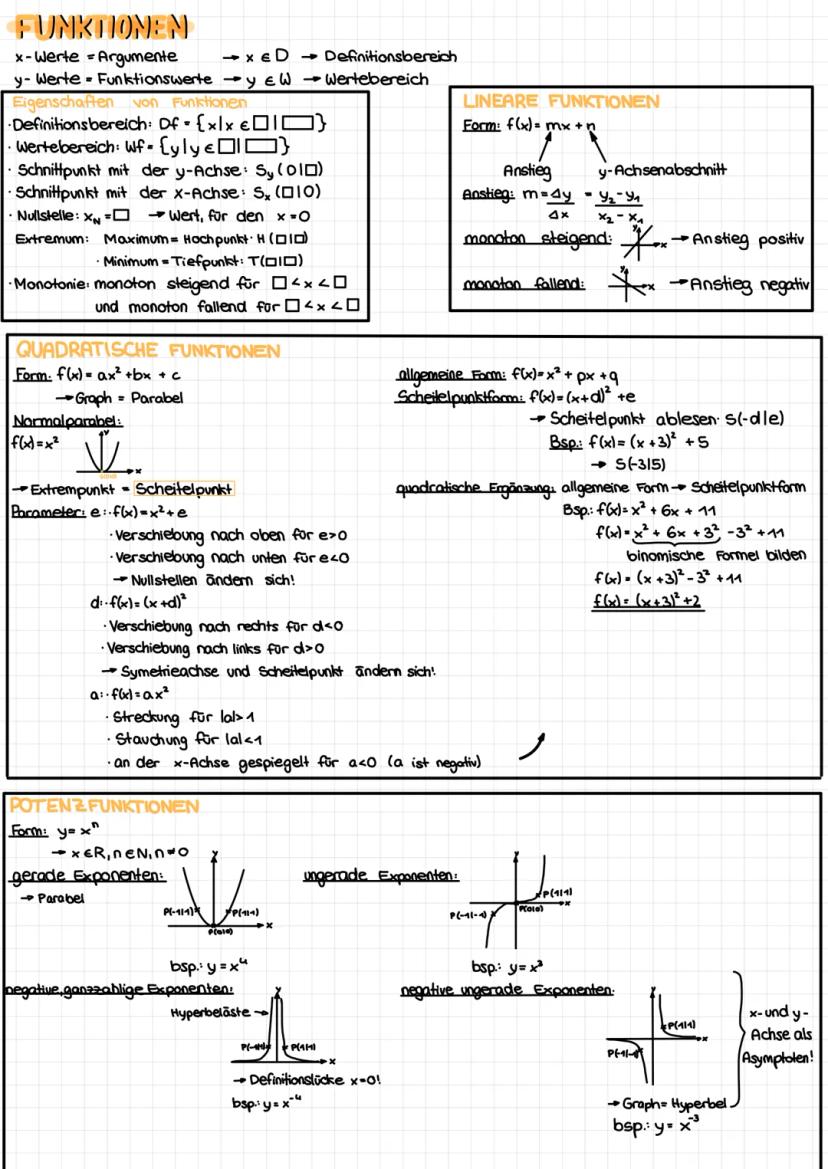 FUNKTIONEN
x-Werte = Argumente → x ∈ D → Definitionsbereich
y-Werte = Funktionswerte → y ∈ W → Wertebereich
Eigenschaften von Funktionen
· Definitionsbereich: Df = {x|x ∈ □ | □}
· Wertebereich: Wf = {y|y ∈ □ | □}
· Schnittpunkt mit der y-Achse: Sy (0|□)
· Schnittpunkt mit der x-Achse: Sx (□|0)
· Nullstelle: xN = □ → Wert, für den x=0
Extremum: Maximum = Hochpunkt · H (□|□)
· Minimum = Tiefpunkt: T(□|□)
· Monotonie: monoton steigend für □ < x < □
und monoton fallend für □ < x < □
LINEARE FUNKTIONEN
Form: f(x) = mx + n
Anstieg y-Achsenabschnitt
Anstieg: m = Δy/Δx = (y₂ - y₁)/(x₂ - x₁)
monoton steigend: y x → Anstieg positiv
monoton fallend: y x → Anstieg negativ
QUADRATISCHE FUNKTIONEN
Form: f(x) = ax² + bx + c
→ Graph = Parabel
Normalparabel:
f(x) = x²
y
x
→ Extrempunkt = Scheitelpunkt
Parameter: e: · f(x) = x² + e
· Verschiebung nach oben für e>0
· Verschiebung nach unten für e<0
→ Nullstellen ändern sich!
d: · f(x) = (x+d)²
· Verschiebung nach rechts für d<0
· Verschiebung nach links für d>0
→ Symetrieachse und Scheitelpunkt ändern sich!
a: · f(x) = ax²
· Streckung für |a|>1
· Stauchung für |a|<1
· an der x-Achse gespiegelt für a<0 (a ist negativ)
allgemeine Form: f(x) = x² + px + q
Scheitelpunktform: f(x) = (x+d)² + e
→ Scheitelpunkt ablesen · S(-d|e)
Bsp.: f(x) = (x+3)² + 5
→ S(-3|5)
quadratische Ergänzung: allgemeine Form → Scheitelpunktform
Bsp.: f(x) = x² + 6x + 11
f(x) = x² + 6x + 3² - 3² + 11
binomische Formel bilden
f(x) = (x+3)² - 3² + 11
f(x) = (x+3)² + 2
POTENZFUNKTIONEN
Form: y = xⁿ
→ x ∈ R, n ∈ N, n ≠ 0
gerade Exponenten:
→ Parabel
y
P(-1|1) P(1|1)
P(0|0) x
bsp.: y = x⁴
ungerade Exponenten:
y
P(1|1)
P(-1|-1) P(0|0) x
bsp.: y = x³
negative, ganzzahlige Exponenten:
Hyperbeläste →
y
P(-1|1) P(1|1)
x
→ Definitionslücke x=0!
bsp.: y = x⁻⁴
negative ungerade Exponenten:
y
P(1|1)
x
P(-1|-1)
→ Graph = Hyperbel
bsp.: y = x⁻³
x- und y-
Achse als
Asymptoten!